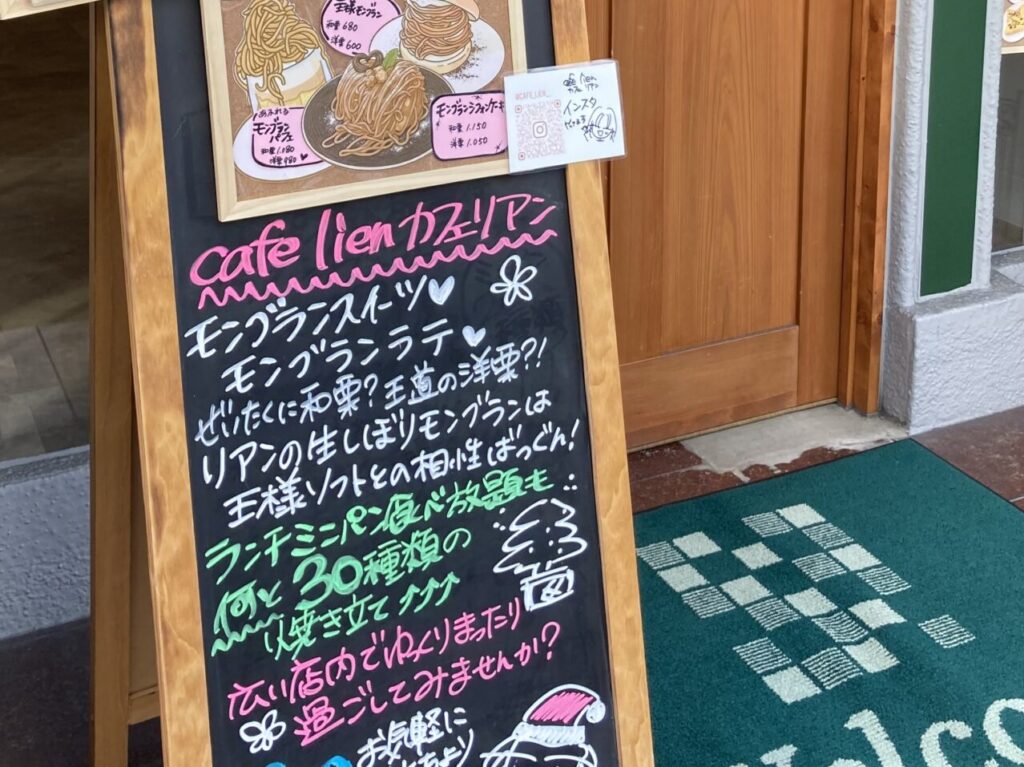 王様モンブラン
和栗 680
洋栗 600
あふれる
モンブラン
パフェ
和栗 1.080
洋栗 980
モンブランシフォンケーキ
和栗 1.150
洋栗 1.050
cafe lien
カフェ リアン
@CAFE.LIEN_
インスタ
cafe lien カフェリアン
モンブランスイーツ♡
モンブランラテ♡
ぜいたくに和栗?王道の洋栗?!
リアンの生しぼりモンブランは
王様ソフトとの相性ばつぐん!
ランチミニパン食べ放題も
何と30種類の
焼き立て↑↑↑
広い店内でゆっくりまったり
過ごしてみませんか?
お気軽に
Welco